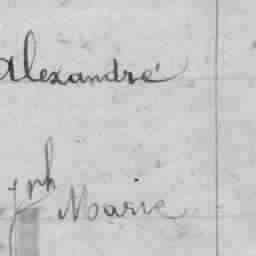 Alexandre
Jph Marie